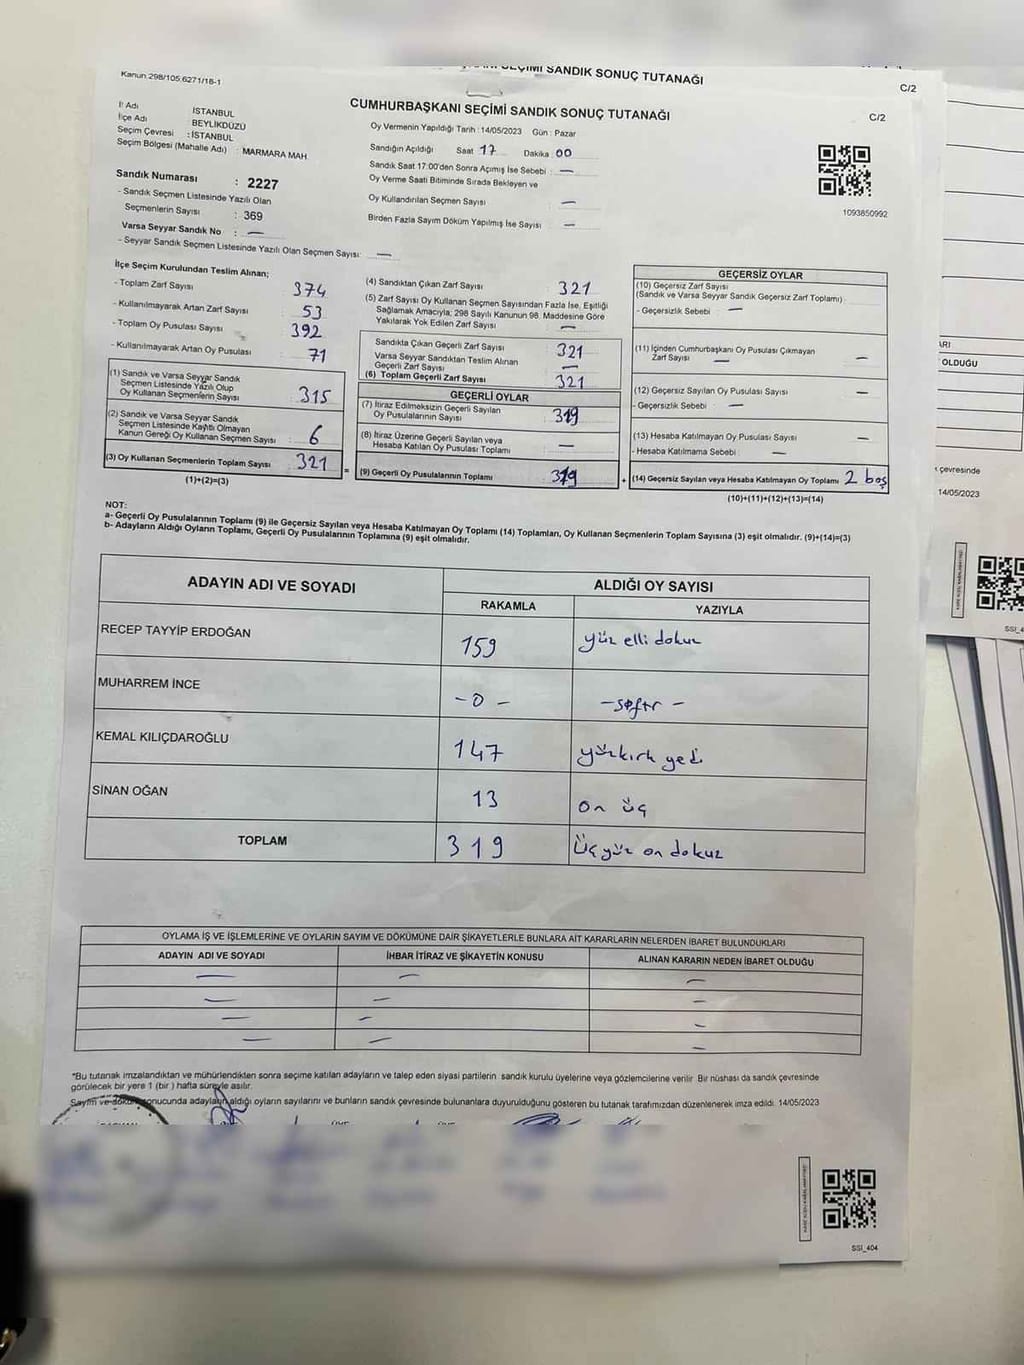 SEÇİMİ SANDIK SONUÇ TUTANAĞI
C/2
Kanun.298/105,6271/18-1
CUMHURBAŞKANI SEÇİMİ SANDIK SONUÇ TUTANAĞI
C/2
İl Adı İSTANBUL
İlçe Adı BEYLİKDÜZÜ
Seçim Çevresi : İSTANBUL
Seçim Bölgesi (Mahalle Adı) : MARMARA MAH.
Sandık Numarası : 2227
- Sandık Seçmen Listesinde Yazılı Olan
Seçmenlerin Sayısı : 369
Varsa Seyyar Sandık No : —
- Seyyar Sandık Seçmen Listesinde Yazılı Olan Seçmen Sayısı: —
Oy Vermenin Yapıldığı Tarih : 14/05/2023 Gün : Pazar
Sandığın Açıldığı Saat 17 Dakika 00
Sandık Saat 17:00'den Sonra Açımış İse Sebebi : —
Oy Verme Saati Bitiminde Sırada Bekleyen ve
Oy Kullandırılan Seçmen Sayısı —
Birden Fazla Sayım Döküm Yapılmış İse Sayısı —
1093850992
İlçe Seçim Kurulundan Teslim Alınan;
- Toplam Zarf Sayısı 374
- Kullanılmayarak Artan Zarf Sayısı 53
- Toplam Oy Pusulası Sayısı 392
- Kullanılmayarak Artan Oy Pusulası 71
(1) Sandık ve Varsa Seyyar Sandık
Seçmen Listesinde Yazılı Olup
Oy Kullanan Seçmenlerin Sayısı : 315
(2) Sandık ve Varsa Seyyar Sandık
Seçmen Listesinde Kayıtlı Olmayan
Kanun Gereği Oy Kullanan Seçmen Sayısı : 6
(3) Oy Kullanan Seçmenlerin Toplam Sayısı 321
(1)+(2)=(3)
=
(4) Sandıktan Çıkan Zarf Sayısı 321
(5) Zarf Sayısı Oy Kullanan Seçmen Sayısından Fazla İse, Eşitliği
Sağlamak Amacıyla; 298 Sayılı Kanunun 98. Maddesine Göre
Yakılarak Yok Edilen Zarf Sayısı —
Sandıkta Çıkan Geçerli Zarf Sayısı 321
Varsa Seyyar Sandıktan Teslim Alınan
Geçerli Zarf Sayısı —
(6) Toplam Geçerli Zarf Sayısı 321
GEÇERLİ OYLAR
(7) İtiraz Edilmeksizin Geçerli Sayılan
Oy Pusulalarının Sayısı 319
(8) İtiraz Üzerine Geçerli Sayılan veya
Hesaba Katılan Oy Pusulaları Toplamı —
(9) Geçerli Oy Pusulalarının Toplamı 319
+
GEÇERSİZ OYLAR
(10) Geçersiz Zarf Sayısı
(Sandık ve Varsa Seyyar Sandık Geçersiz Zarf Toplamı)
- Geçersizlik Sebebi : —
(11) İçinden Cumhurbaşkanı Oy Pusulası Çıkmayan
Zarf Sayısı — —
(12) Geçersiz Sayılan Oy Pusulası Sayısı —
- Geçersizlik Sebebi : —
(13) Hesaba Katılmayan Oy Pusulası Sayısı —
- Hesaba Katılmama Sebebi : —
(14) Geçersiz Sayılan veya Hesaba Katılmayan Oy Toplamı 2 boş
(10)+(11)+(12)+(13)=(14)
NOT:
a- Geçerli Oy Pusulalarının Toplamı (9) ile Geçersiz Sayılan veya Hesaba Katılmayan Oy Toplamı (14) Toplamları, Oy Kullanan Seçmenlerin Toplam Sayısına (3) eşit olmalıdır. (9)+(14)=(3)
b- Adayların Aldığı Oyların Toplamı, Geçerli Oy Pusulalarının Toplamına (9) eşit olmalıdır.
ADAYIN ADI VE SOYADI ALDIĞI OY SAYISI
RAKAMLA YAZIYLA
RECEP TAYYİP ERDOĞAN 159 yüz elli dokuz
MUHARREM İNCE - 0 - - sıfır -
KEMAL KILIÇDAROĞLU 147 yüzkırk yedi
SİNAN OĞAN 13 on üç
TOPLAM 319 Üçyüz on dokuz
OYLAMA İŞ VE İŞLEMLERİNE VE OYLARIN SAYIM VE DÖKÜMÜNE DAİR ŞİKAYETLERLE BUNLARA AİT KARARLARIN NELERDEN İBARET BULUNDUKLARI
ADAYIN ADI VE SOYADI İHBAR İTİRAZ VE ŞİKAYETİN KONUSU ALINAN KARARIN NEDEN İBARET OLDUĞU
— — —
— — —
— — —
— — —
*Bu tutanak imzalandıktan ve mühürlendikten sonra seçime katılan adayların ve talep eden siyasi partilerin sandık kurulu üyelerine veya gözlemcilerine verilir. Bir nüshası da sandık çevresinde
görülecek bir yere 1 (bir) hafta süreyle asılır.
Sayım ve döküm sonucunda adayların aldığı oyların sayılarını ve bunların sandık çevresinde bulunanlara duyurulduğunu gösteren bu tutanak tarafımızdan düzenlenerek imza edildi. 14/05/2023
SSI_404
OLDUĞU
çevresinde
14/05/2023